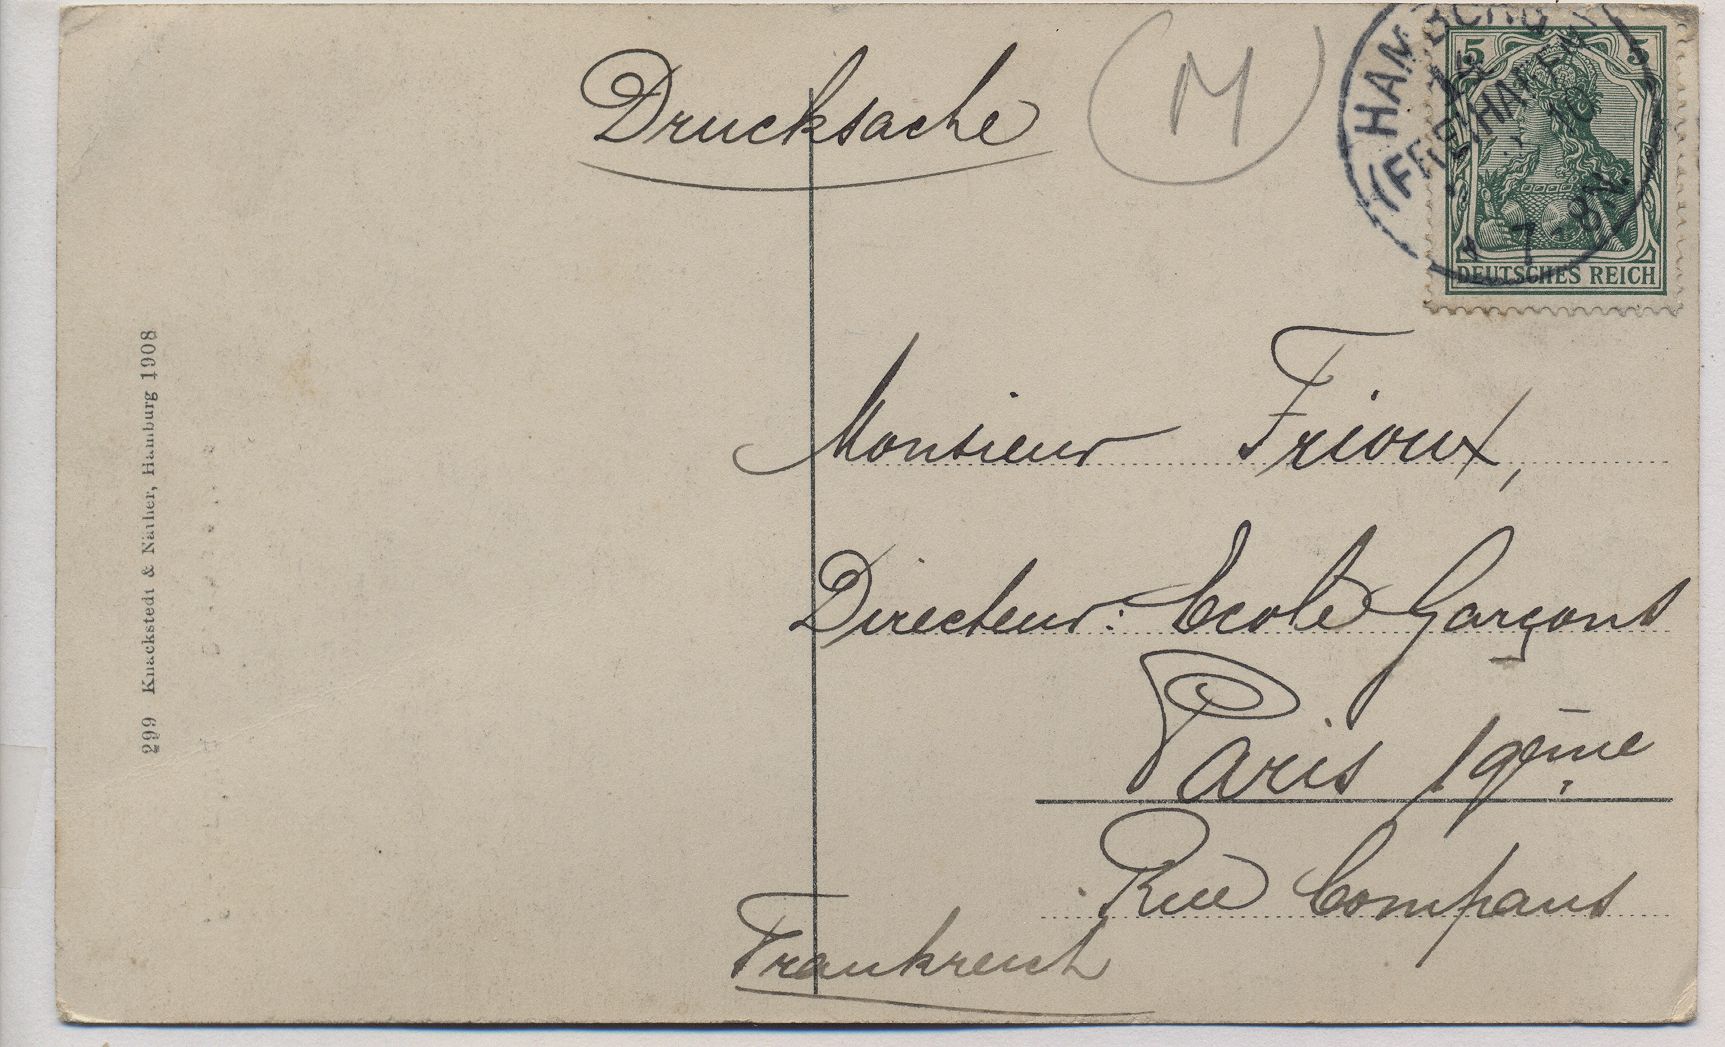 Drucksache
(M)
HAMBURG
(FREIHAFEN)
10
7-8N.
5 5
DEUTSCHES REICH
Monsieur Frioux,
Directeur: Ecole Garçons
Paris 19ème
Rue Compans
Frankreich
299 Knackstedt & Näther, Hamburg 1908